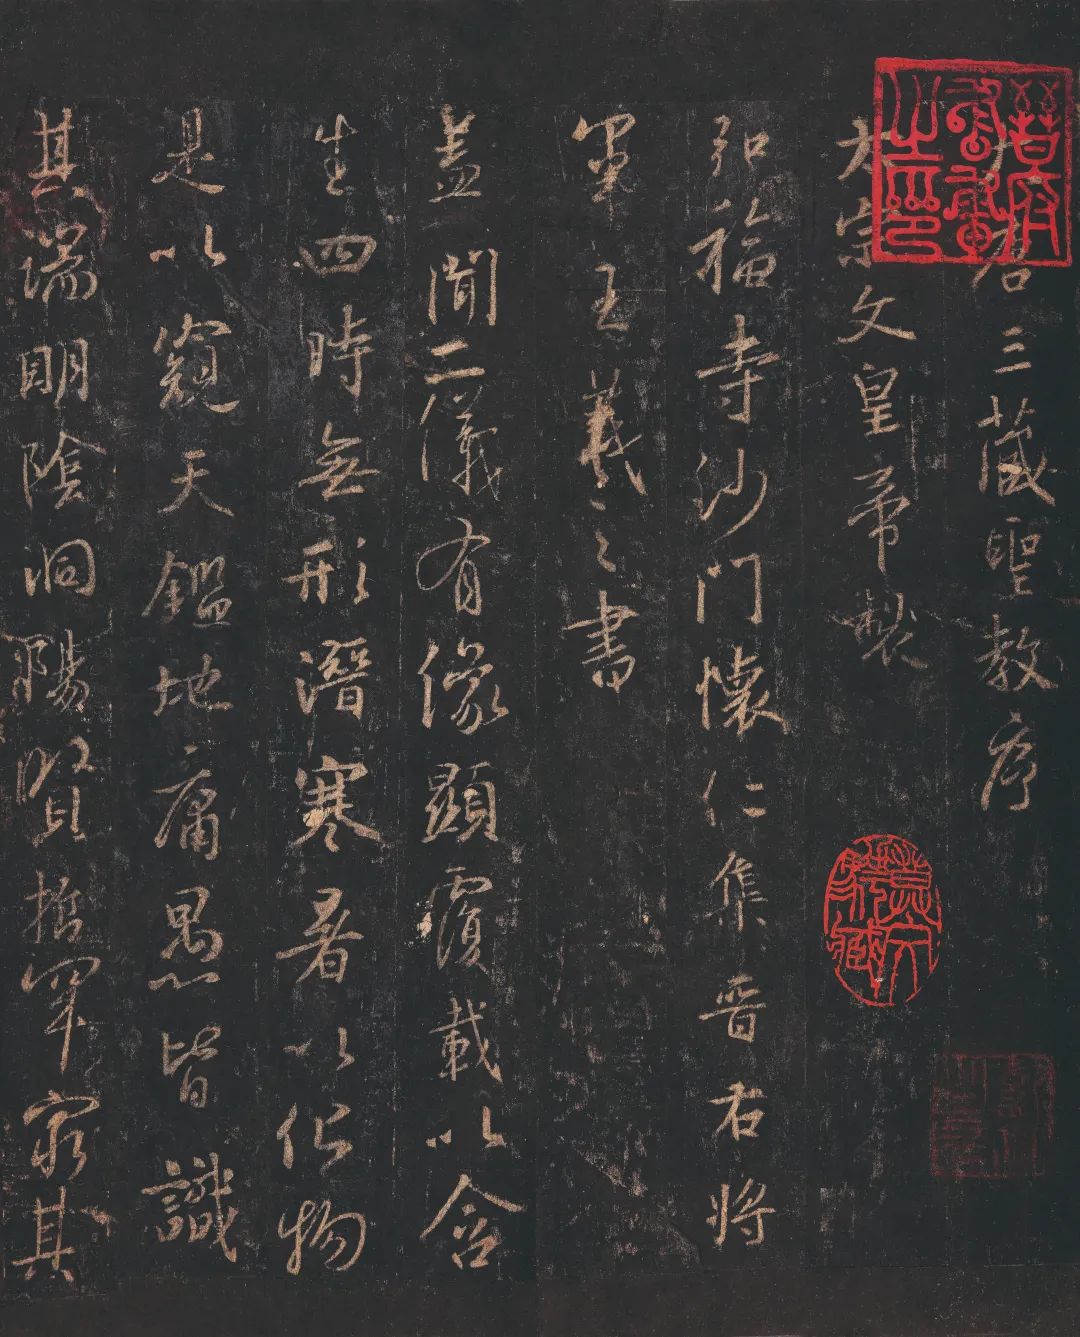 大唐三藏聖教序
太宗文皇帝製
弘福寺沙門懷仁集晉右將
軍王羲之書
蓋聞二儀有像顯覆載以含
生四時無形潛寒暑以化物
是以窺天鑑地庸愚皆識
其端明陰洞陽賢哲罕窮其
晉府書畫之印